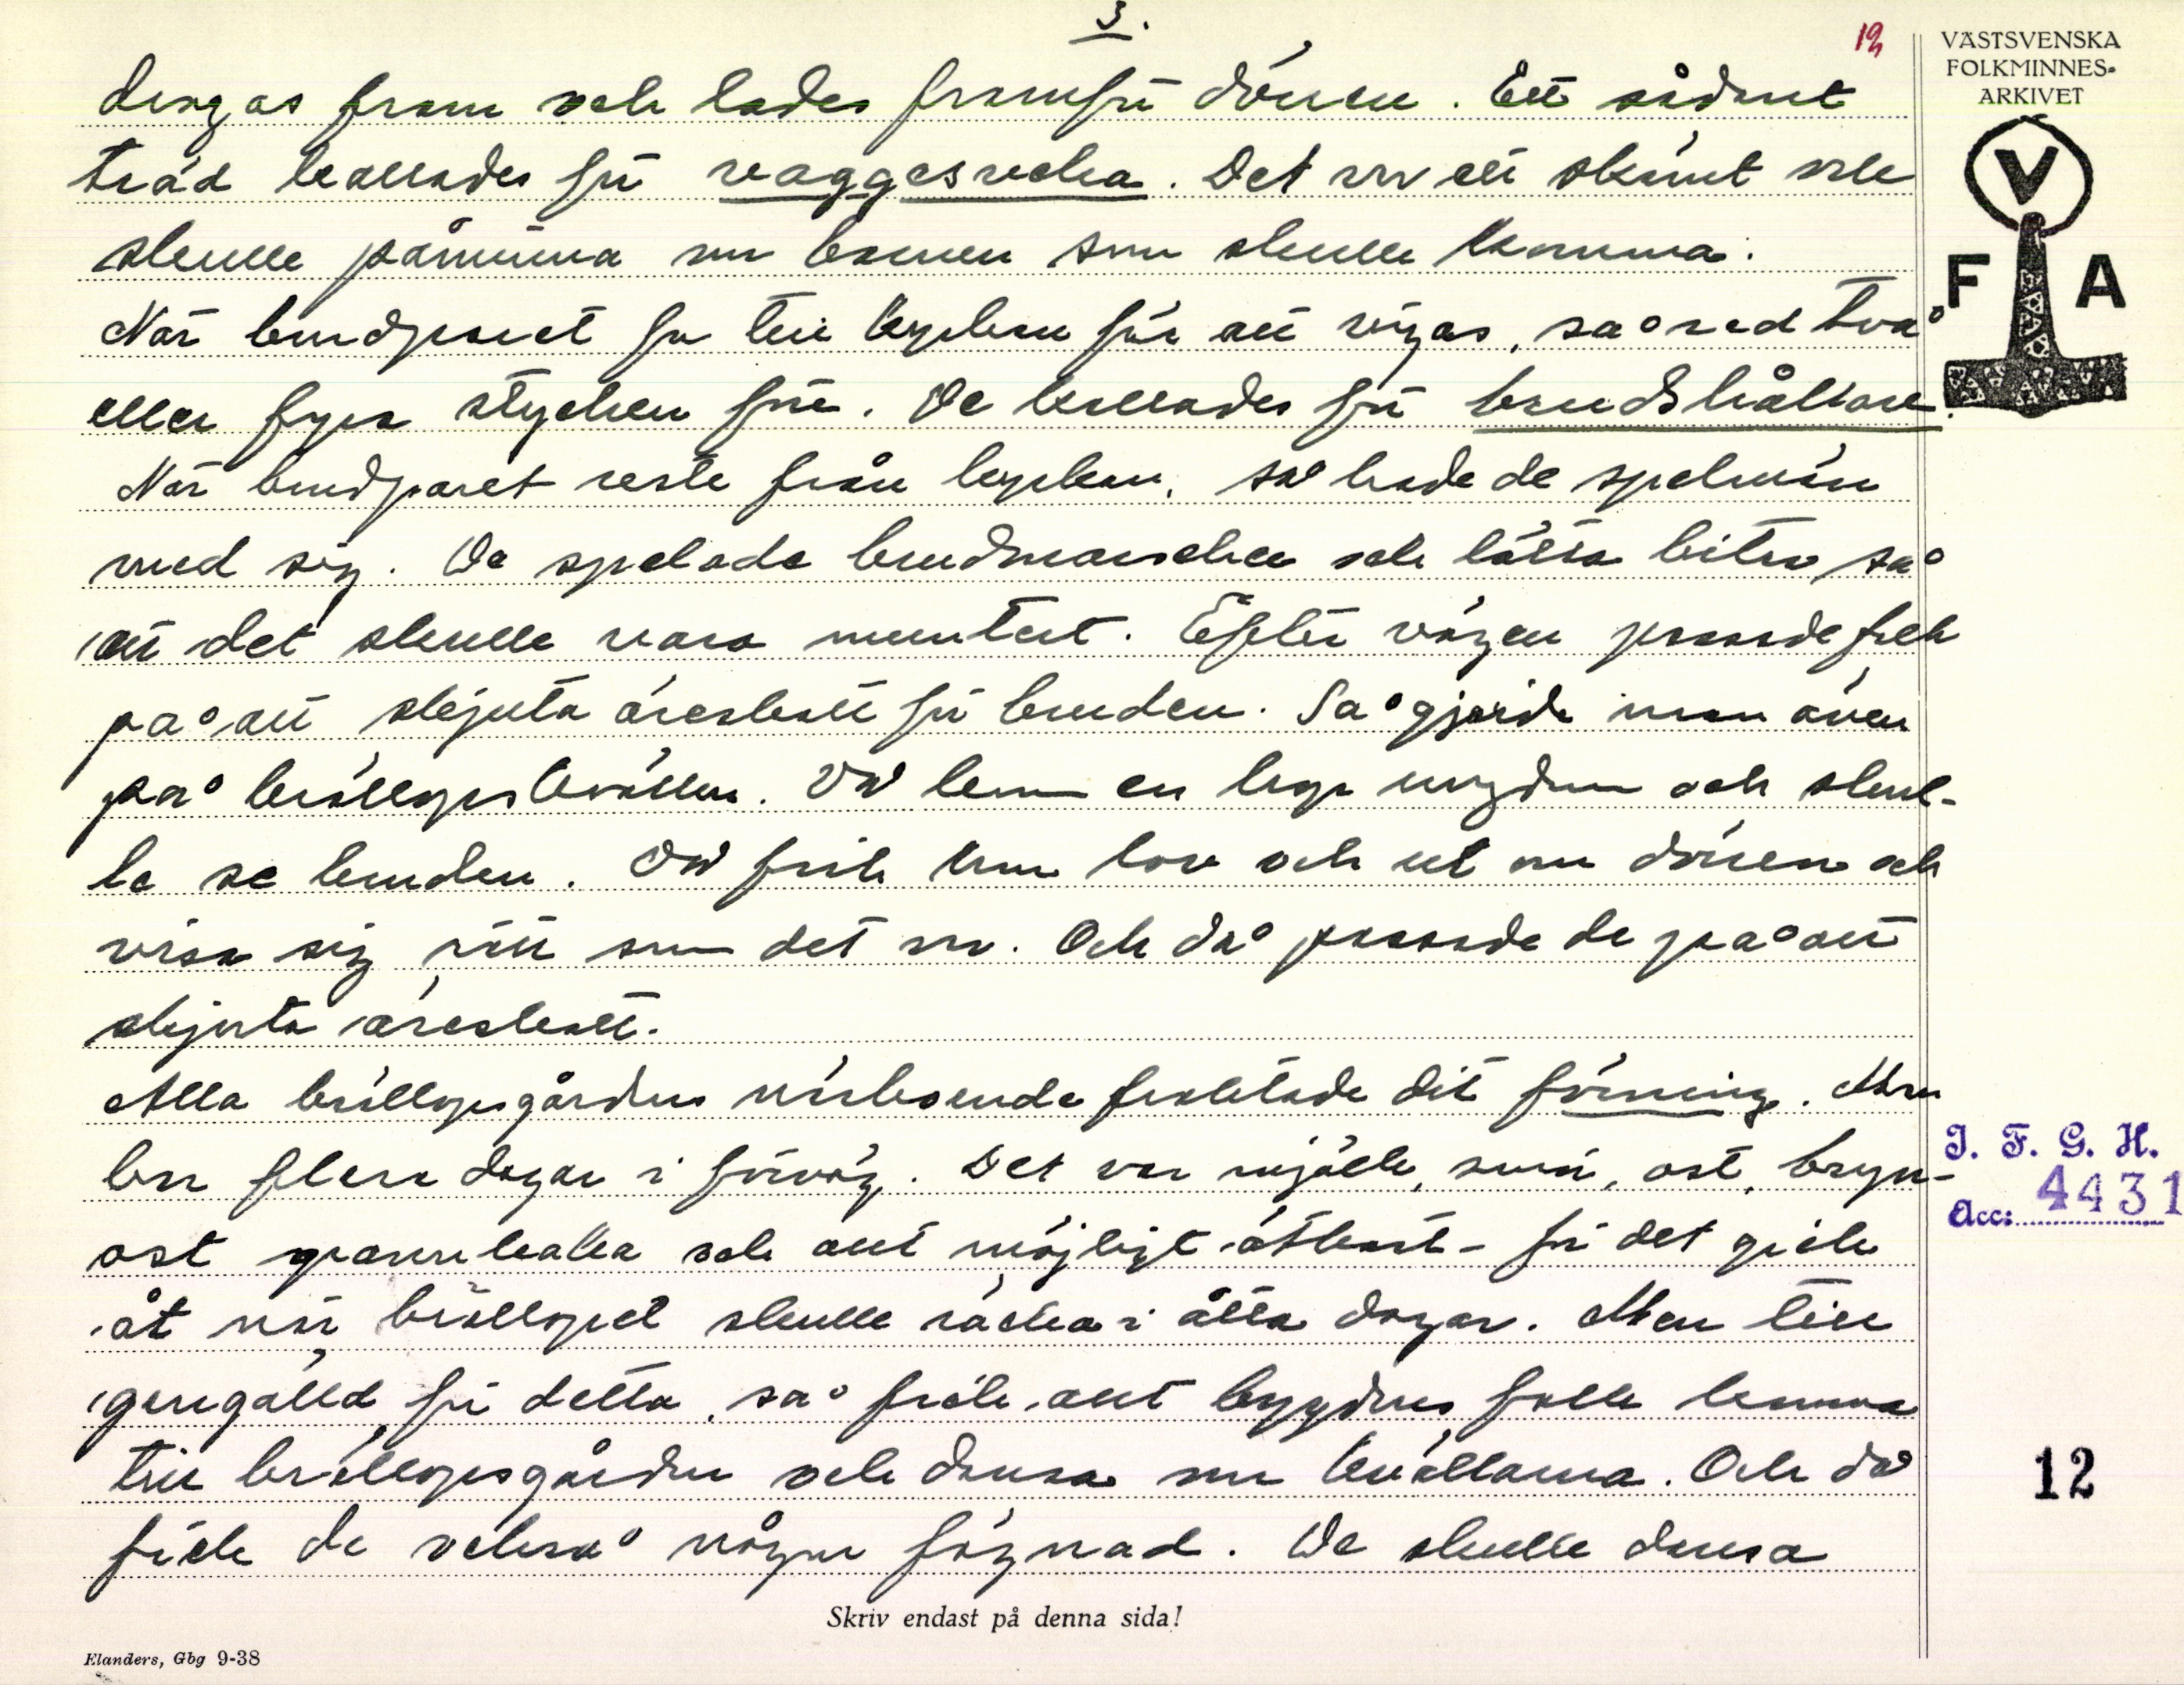 3.
12
VÄSTSVENSKA
FOLKMINNES-
ARKIVET
V
F A
dragas fram och lades framför dörren. Ett sådant
träd kallades för vaggesveka. Det var ett skämt och
skulle påminna om barnen som skulle komma.
När brudparet for till kyrkan för att vigas, så red två
eller fyra stycken före. De kallades för brudshållare.
När brudparet reste från kyrkan, så hade de spelmän
med sig. De spelade brudmarschen och lätta bitar så
att det skulle vara muntert. Efter vägen passade folk
på att skjuta äreskott för bruden. Så gjorde man även
på bröllopskvällen. Då kom en hop ungdom och skul-
le se bruden. Då fick hon lov och ut om dörren och
visa sig rätt som det var. Och då passade de på att
skjuta äreskott.
Alla bröllopsgårdens närboende fraktade dit förning. Man
bar flera dagar i förväg. Det var mjölk, smör, ost, bryn-
ost pannkaka och allt möjligt ätbart - för det gick
åt när bröllopet skulle räcka i åtta dagar. Men till
gengälld för detta, så fick allt bygdens folk komma
till bröllopsgården och dansa om kvällarna. Och då
fick de också någon fägnad. De skulle dansa
J. F. G. H.
Acc: 4431
12
Skriv endast på denna sida!
Elanders, Gbg 9-38